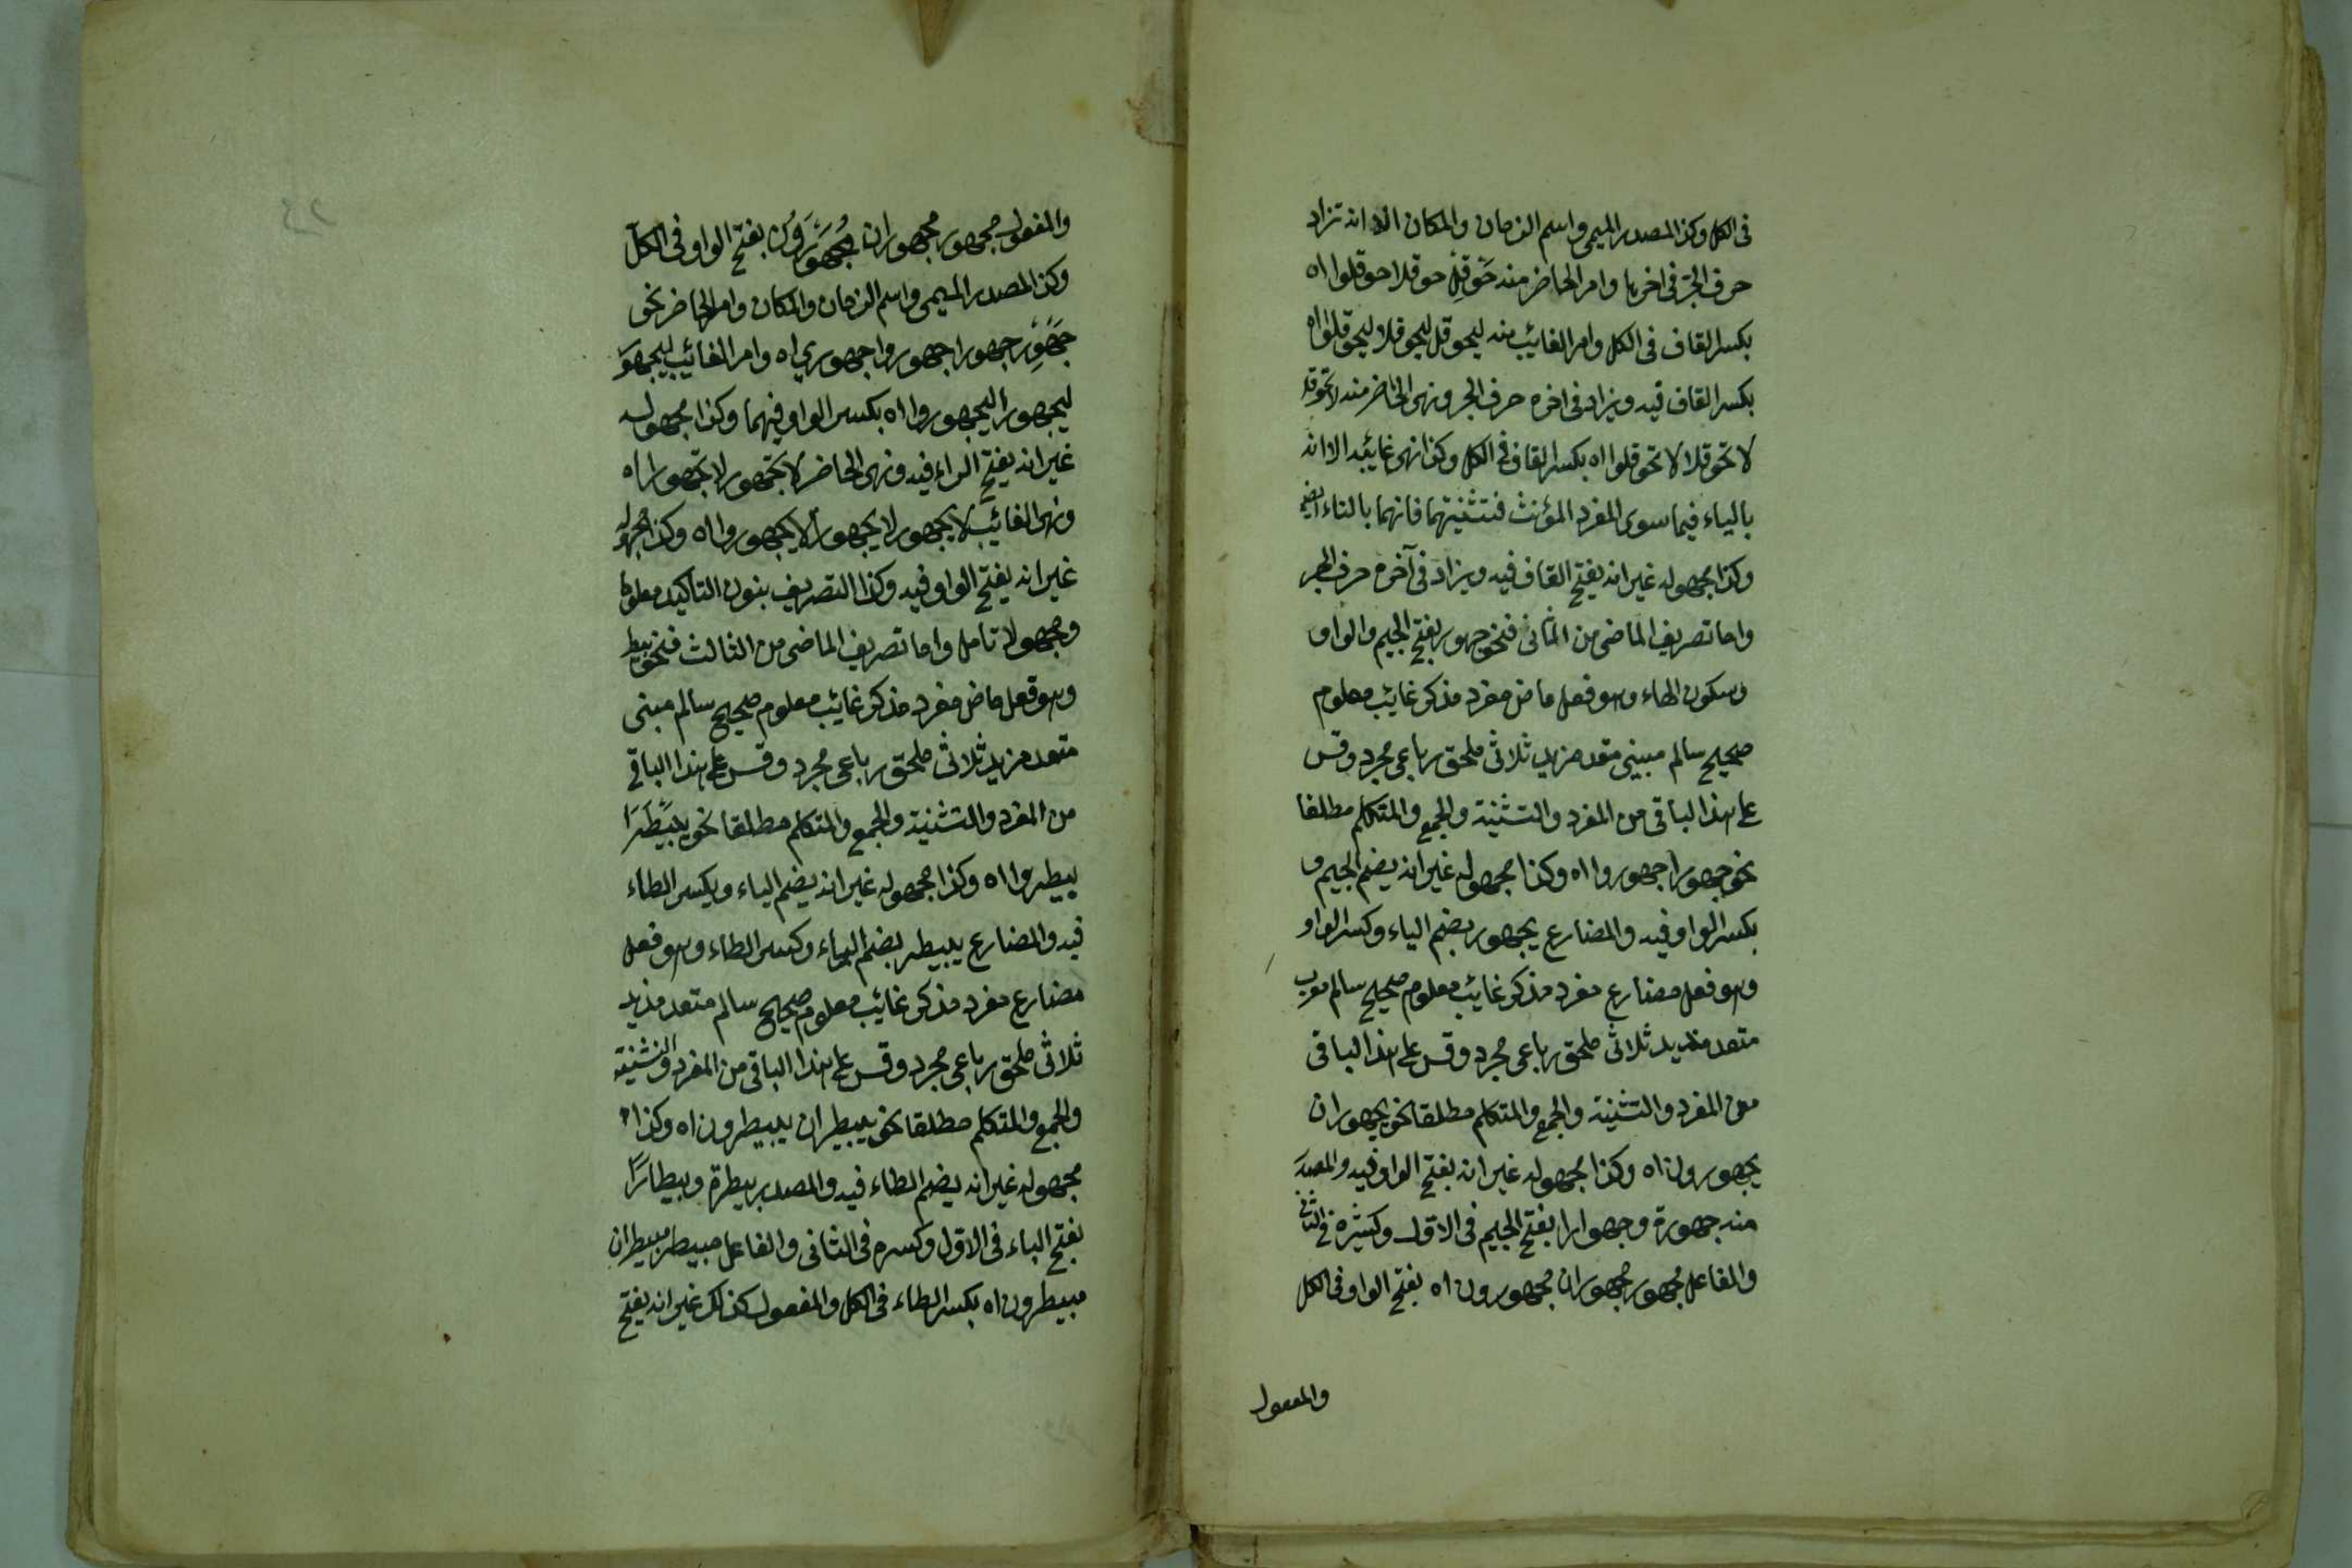 فى الكل وكذا المصدر الميمى واسم الزمان والمكان الا انه تزاد
حرف الجر فى اخرها وامر الحاضر منه حَوْقِلْ حوقلا حوقلوا اه
بكسر القاف فى الكل وامر الغائب منه ليحوقل ليحوقلا ليحوقلوا اه
بكسر القاف فيه ويزاد فى اخره حرف الجر ونهى الحاضر منه لا تحوقل
لا تحوقلا لا تحوقلوا اه بكسر القاف فى الكل وكذا نهى غائبه الا انه
بالياء فيما سوى المفرد المؤنث فتثنيتهما فانهما بالتاء ايضا
وكذا مجهوله غير انه يفتح القاف فيه ويزاد فى آخره حرف الجر
واما تصريف الماضى من الثانى فنحو جهور بفتح الجيم والواو
وسكون الهاء وهو فعل ماض مفرد مذكر غائب معلوم
صحيح سالم مبنى متعد مزيد ثلاثى ملحق رباعى مجرد وقس
على هذا الباقى من المفرد والتثنية والجمع والمتكلم مطلقا
نحو جهورا جهوروا اه وكذا مجهوله غير انه يضم الجيم و
بكسر الواو فيه والمضارع يجهور بضم الياء وكسر الواو
وهو فعل مضارع مفرد مذكر غائب معلوم صحيح سالم معرب
متعد مزيد ثلاثى ملحق رباعى مجرد وقس على هذا الباقى
من المفرد والتثنية والجمع والمتكلم مطلقا نحو يجهوران
يجهورون اه وكذا مجهوله غير انه بفتح الواو فيه والمصدر
منه جهورة وجهوارا بفتح الجيم فى الاول وكسره فى الثانى
والفاعل مجهور مجهوران مجهورون اه بفتح الواو فى الكل
والمفعول
والمفعول مجهور مجهوران مُجَهْوَرُونَ بفتح الواو فى الكل
وكذا المصدر الميمى واسم الزمان والمكان وامر الحاضر نحو
جَهْوِرْ جهورا جهوروا جهورى اه وامر الغائب ليجهور
ليجهورا ليجهوروا اه بكسر الواو فيهما وكذا مجهوله
غير انه يفتح الراء فيه ونهى الحاضر لا تجهور لا تجهورا اه
ونهى الغائب لا يجهور لا يجهورا لا يجهوروا اه وكذا مجهوله
غير انه يفتح الواو فيه وكذا التصريف بنون التأكيد معلوما
ومجهولا تامل واما تصريف الماضى من الثالث فنحو بيطر
وهو فعل ماض مفرد مذكر غائب معلوم صحيح سالم مبنى
متعد مزيد ثلاثى ملحق رباعى مجرد وقس على هذا الباقى
من المفرد والتثنية والجمع والمتكلم مطلقا نحو بَيْطَرَا
بيطروا اه وكذا مجهوله غير انه يضم الباء ويكسر الطاء
فيه والمضارع يبيطر بضم الياء وكسر الطاء وهو فعل
مضارع مفرد مذكر غائب معلوم صحيح سالم متعد مزيد
ثلاثى ملحق رباعى مجرد وقس على هذا الباقى من المفرد والتثنية
والجمع والمتكلم مطلقا نحو يبيطران يبيطرون اه وكذا
مجهوله غير انه يضم الطاء فيه والمصدر بيطرة وبيطارًا
بفتح الباء فى الاول وكسره فى الثانى والفاعل مبيطر مبيطران
مبيطرون اه بكسر الطاء فى الكل والمفعول كذلك غير انه يفتح